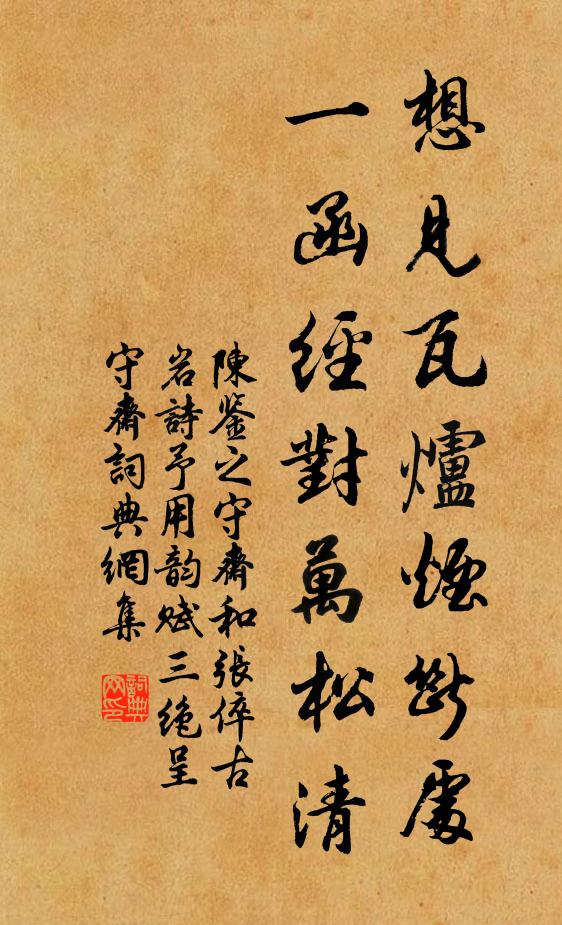 想見瓦爐煙斷處
一函經對萬松清
陳鋻之守齋和張倅古
岩詩予用韵賦三絶呈
守齋詞典網集
詞典
网印